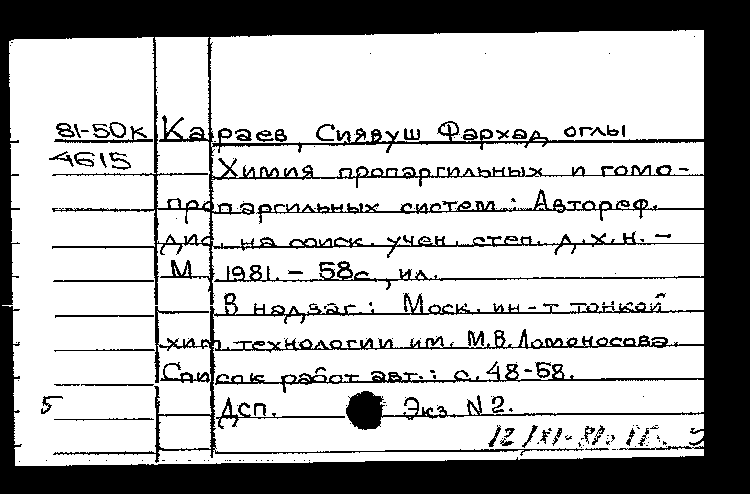 81-50к Караев, Сиявуш Фархад оглы
4615 Химия пропаргильных и гомо-
пропаргильных систем: Автореф.
дис. на соиск. учен. степ. д.х.н. -
М 1981. - 58с, ил.
В надзаг.: Моск. ин-т тонкой
хим. технологии им. М.В. Ломоносова.
Список работ авт.: с. 48-58.
5 Дсп. Экз. N 2.
12/XI-81.